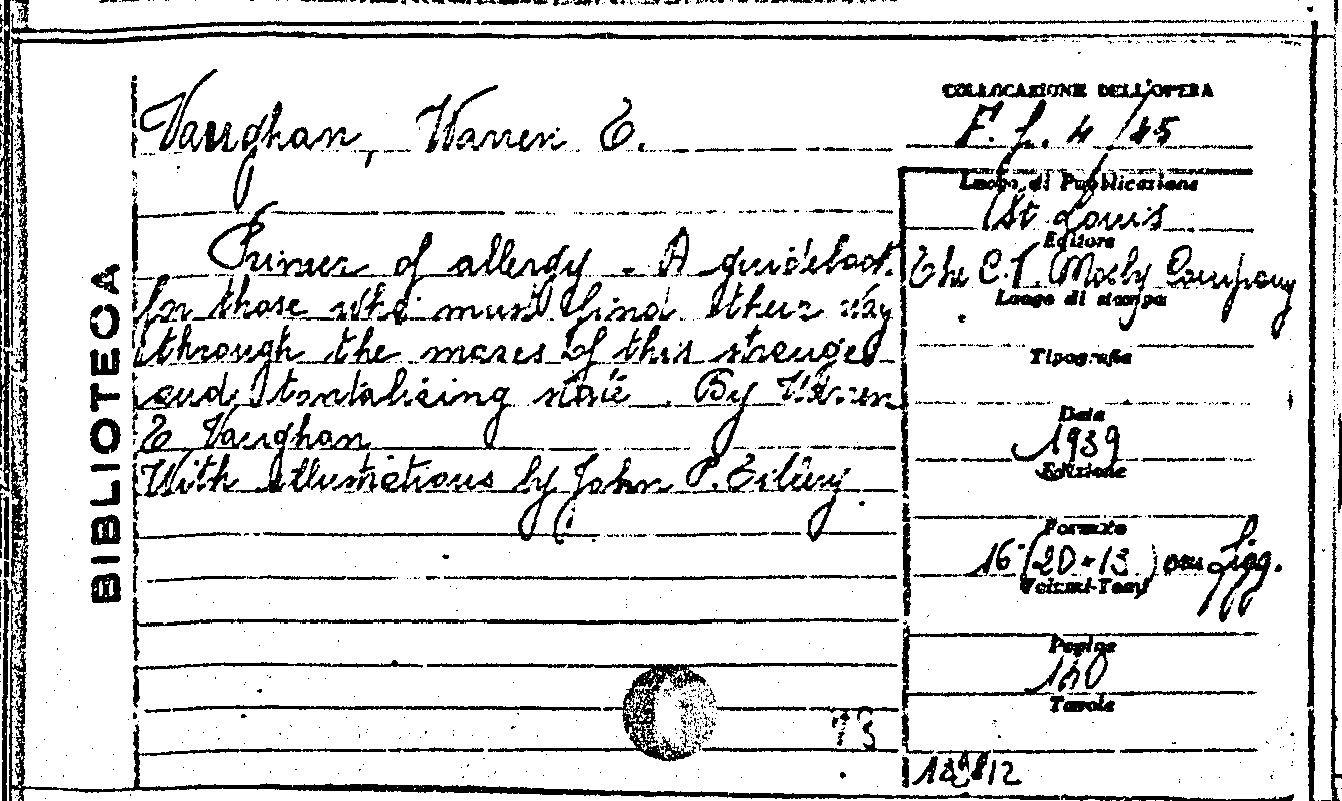 BIBLIOTECA
Vaughan, Warren E.
Primer of allergy - A guidebook
for those who must find their way
through the mazes of this strange
and tantalising state. By Warren
E Vaughan
With illustrations by John P.
COLLOCAZIONE DELL'OPERA
4/45
Luogo di Pubblicazione
St Louis
Editore
The C.V. Mosby Company
Luogo di stampa
Tipografia
Data
1939
Edizione
Formato
16° (20-13) con figg.
Volumi-Tomi
Pagine
140
Tavole